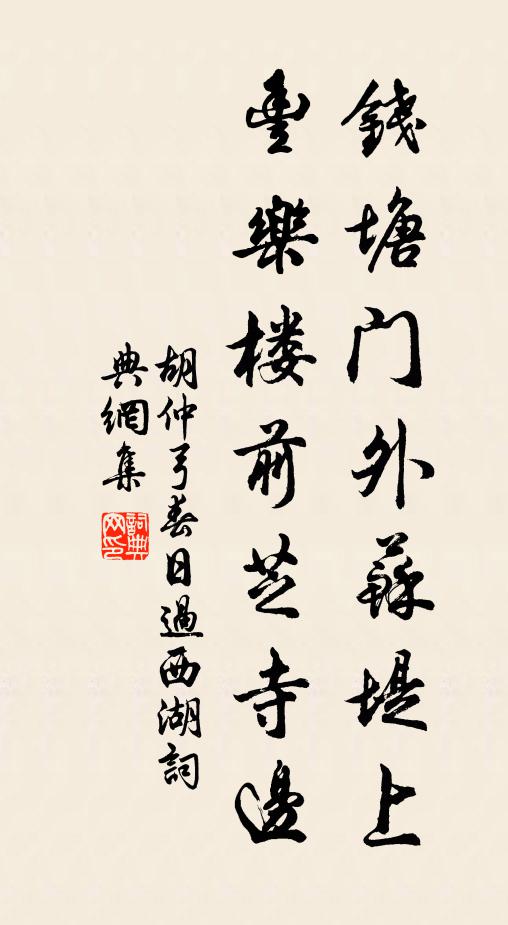 錢塘門外蘇堤上
豊樂楼前芝寺邊
胡仲弓春日過西湖詞
典網集
詞典
网印